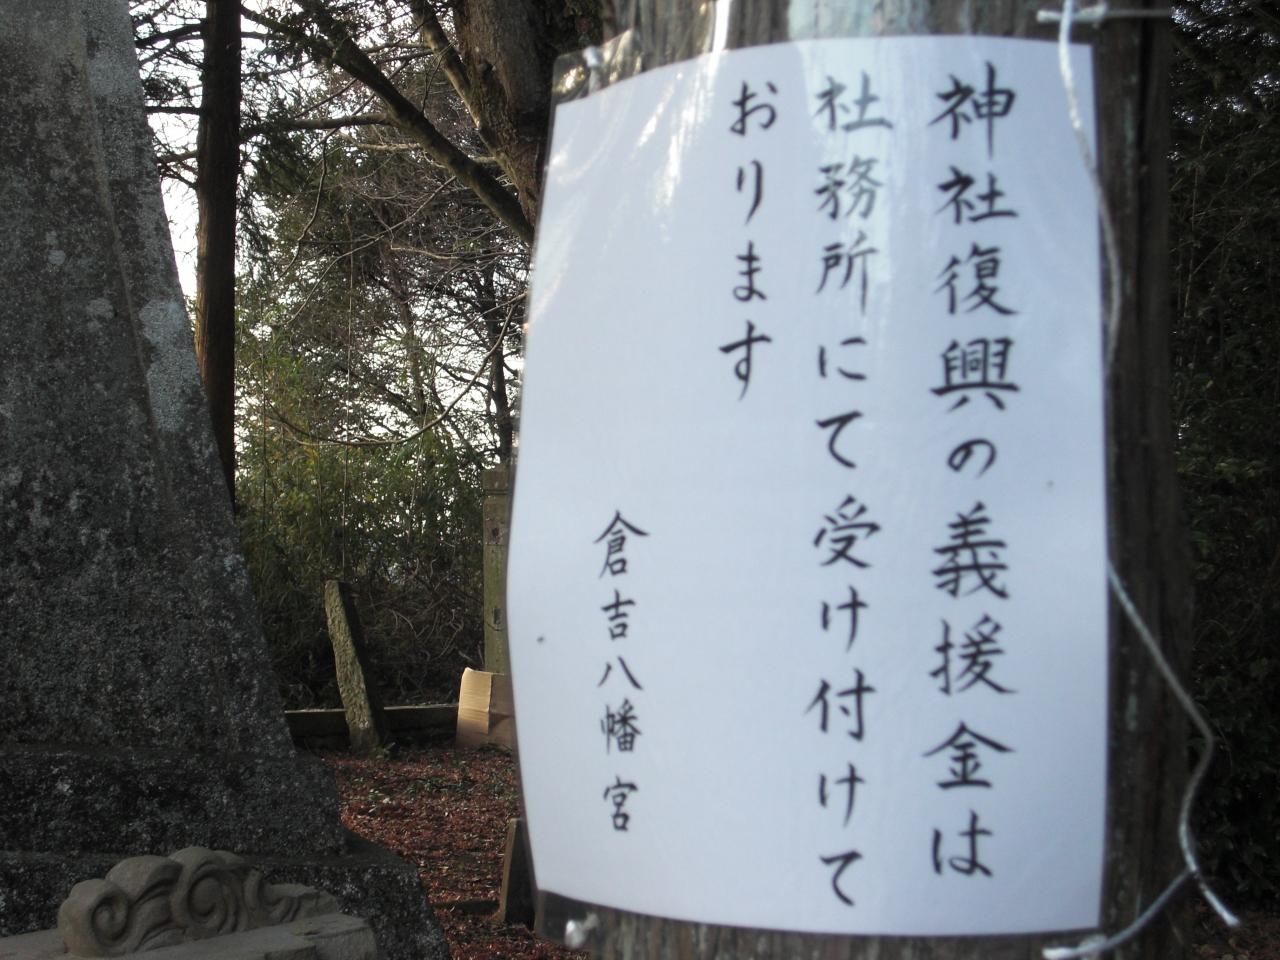 神社復興の義援金は
社務所にて受け付けて
おります
倉吉八幡宮